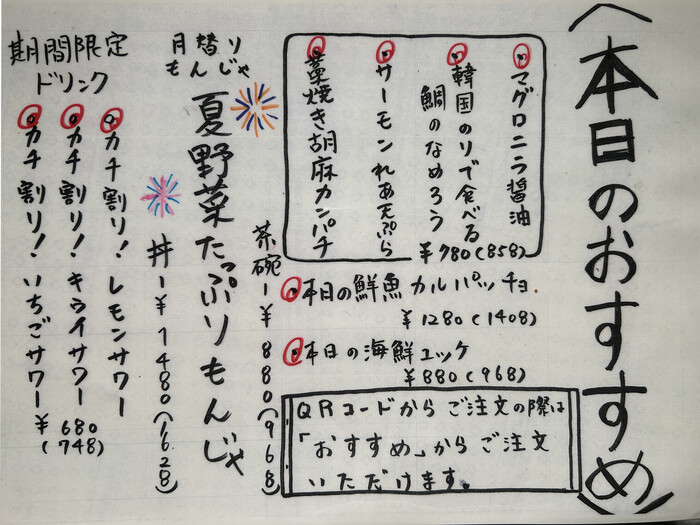 〈本日のおすすめ〉
マグロニラ醤油
韓国のりで食べる
鯛のなめろう
サーモンれあ天ぷら
藁焼き胡麻カンパチ
¥780(858)
本日の鮮魚カルパッチョ
¥1280(1408)
本日の海鮮ユッケ
¥880(968)
QRコードからご注文の際は
「おすすめ」からご注文
いただけます。
月替り
もんじゃ
夏野菜たっぷりもんじゃ
茶碗ー¥880(968)
丼ー¥1480(1628)
期間限定
ドリンク
カチ割り!レモンサワー
カチ割り!キウイサワー
カチ割り!いちごサワー
¥680
(748)